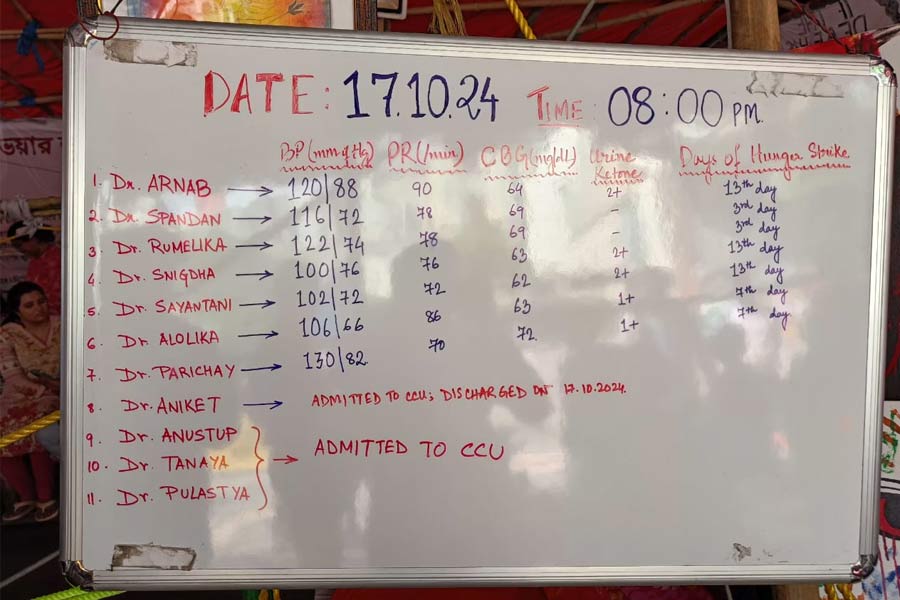 DATE: 17.10.24 TIME: 08:00 PM.
BP (mm of Hg) PR (/min) CBG (mg/dL) Urine Ketone Days of Hunger Strike
1. Dr. ARNAB → 120/88 90 64 2+ 13th day
2. Dr. SPANDAN → 116/72 78 69 - 3rd day
3. Dr. RUMELIKA → 122/74 78 69 - 3rd day
4. Dr. SNIGDHA → 100/76 76 63 2+ 13th day
5. Dr. SAYANTANI → 102/72 72 62 2+ 13th day
6. Dr. ALOLIKA → 106/66 86 63 1+ 7th day
7. Dr. PARICHAY → 130/82 70 72 1+ 7th day
8. Dr. ANIKET → ADMITTED TO CCU; DISCHARGED ON 17.10.2024.
9. Dr. ANUSTUP
10. Dr. TANAYA → ADMITTED TO CCU
11. Dr. PULASTYA